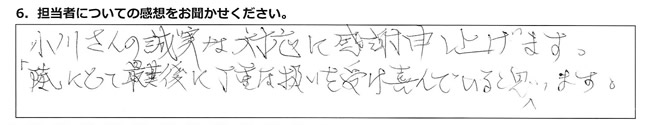 6. 担当者についての感想をお聞かせください。
小川さんの誠実な対応に感謝申し上げます。
にとって最後に丁重な扱いを受け喜んでいると思います。